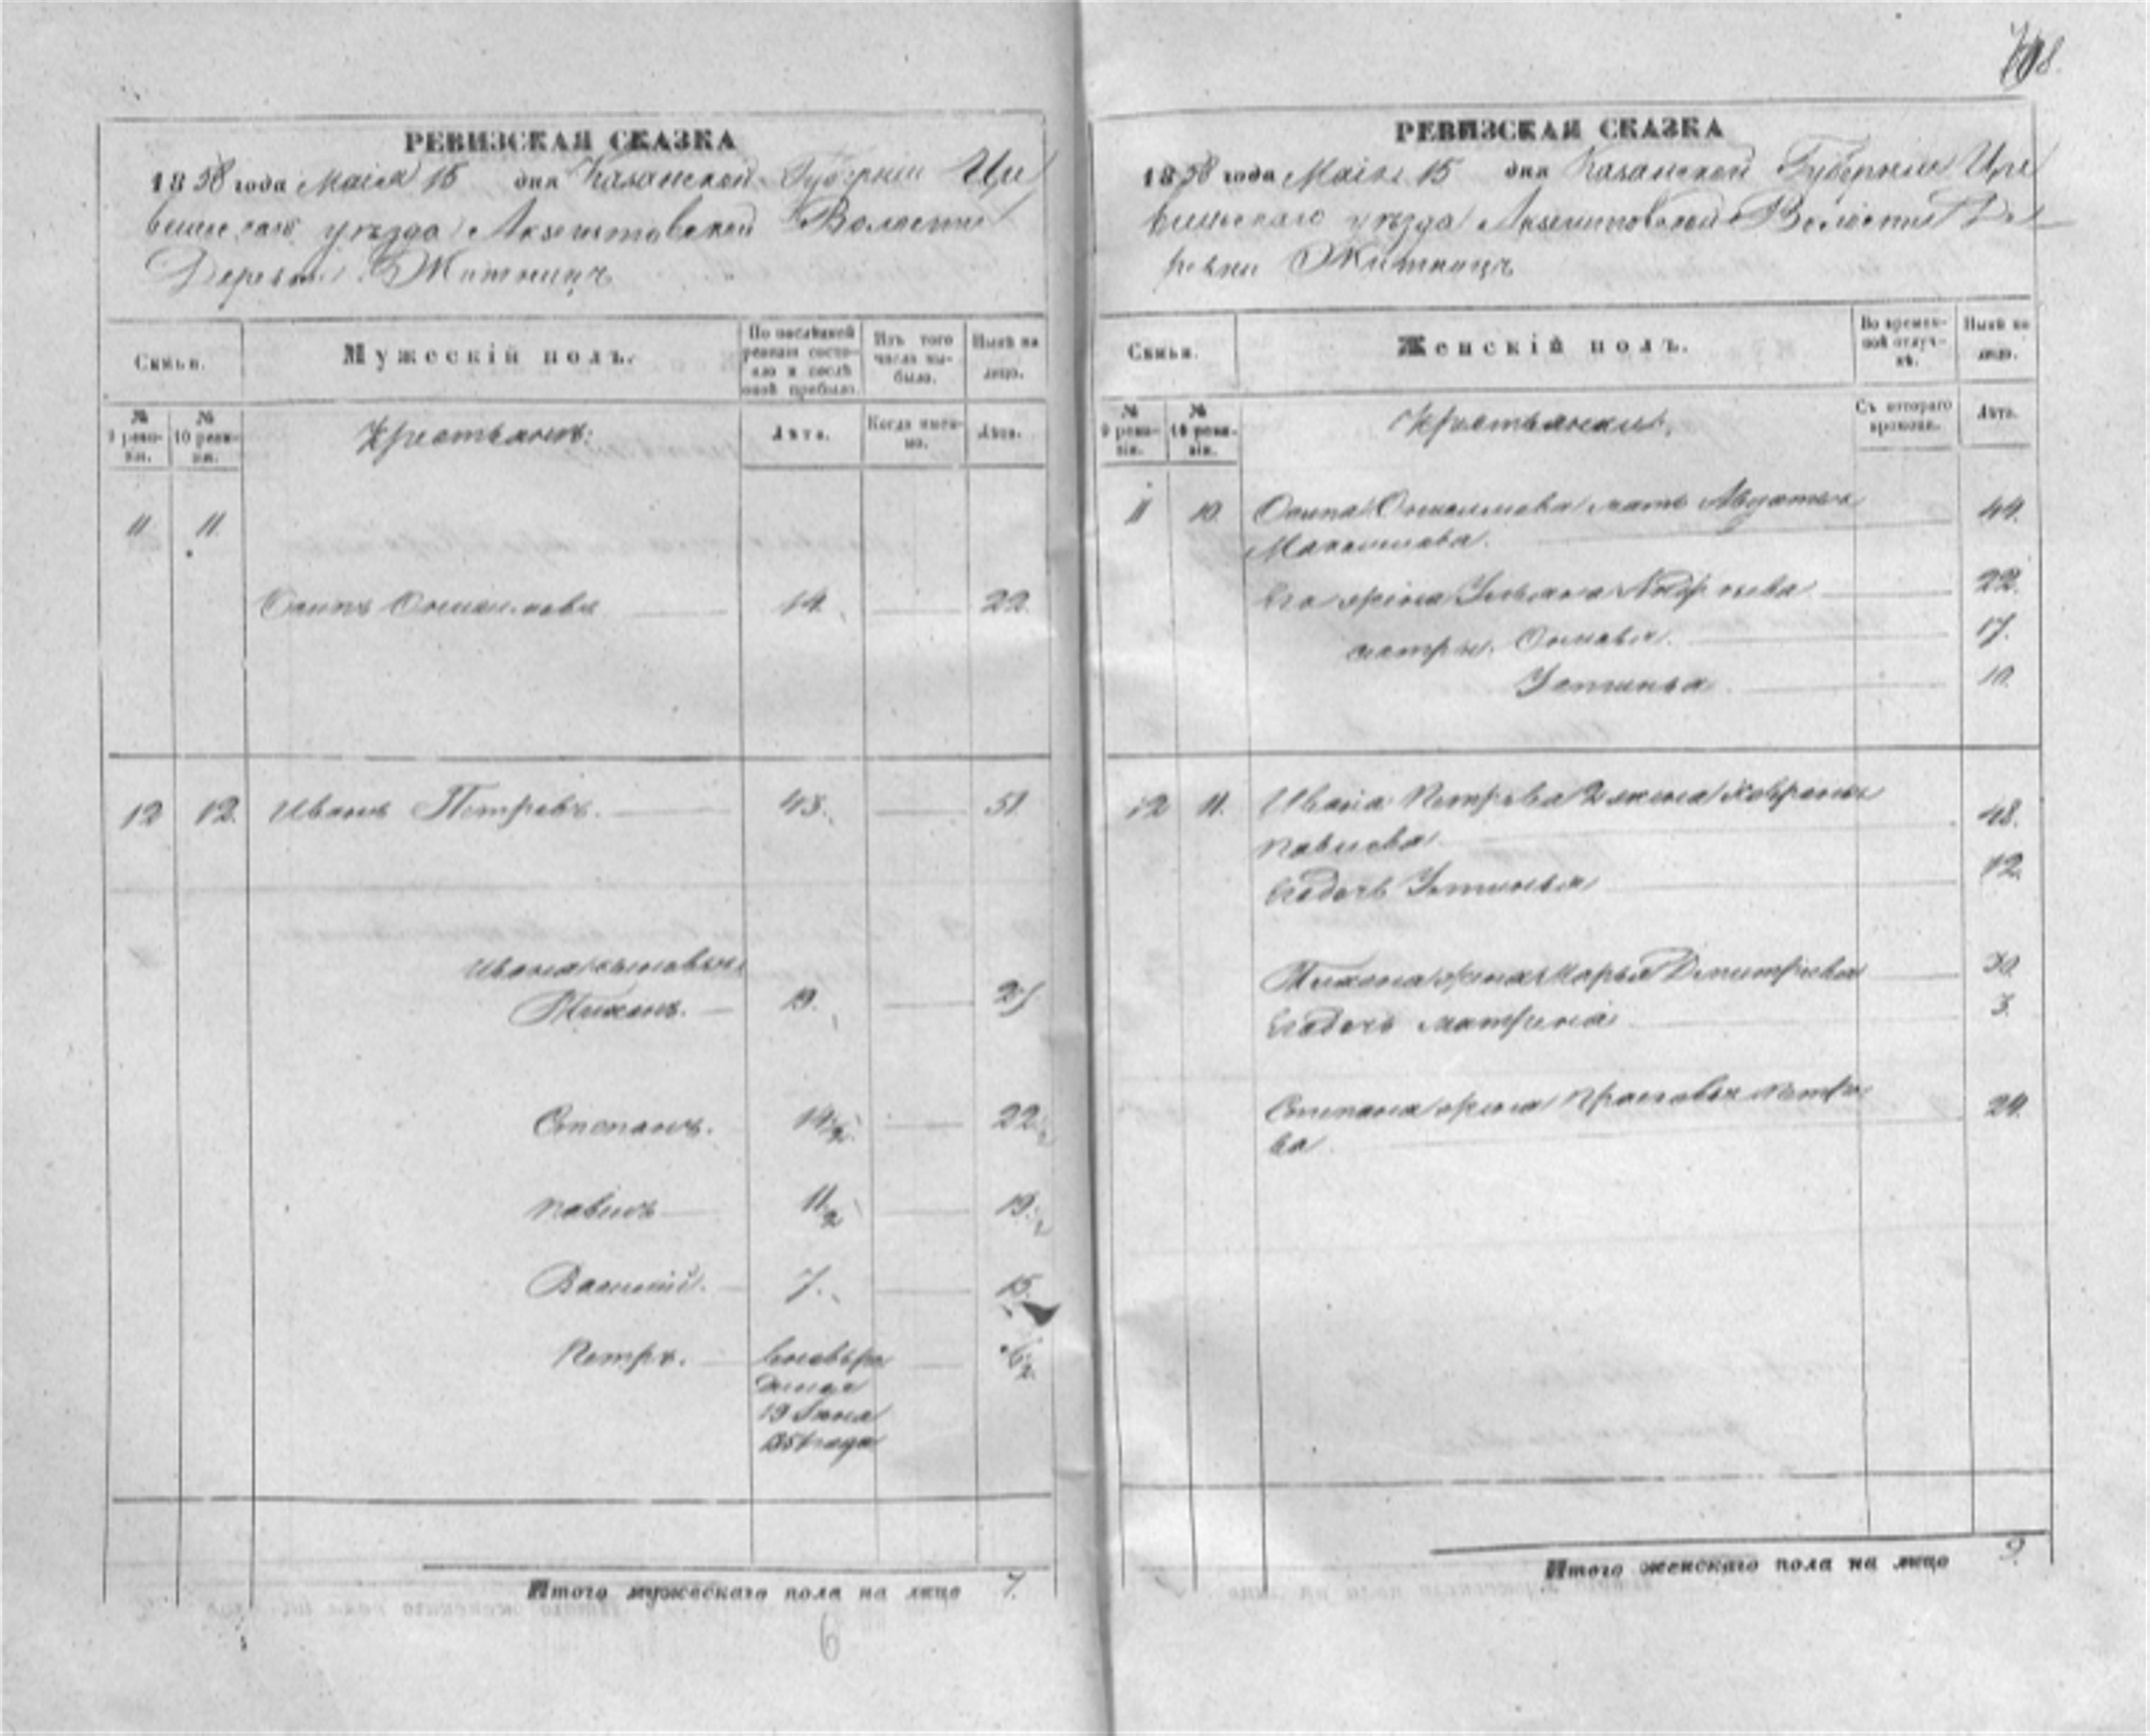 708.
РЕВИЗСКАЯ СКАЗКА
1858 года Маія 15 дня Казанской Губерніи Ци
вильскаго уѣзда Волости
Деревни Житницъ
Семьи.
Мужескій полъ.
По послѣдней ревизіи состояло и послѣ оной прибыло.
Изъ того числа выбыло.
Нынѣ на лицо.
№ 9 ревизіи.
№ 10 ревизіи.
Крестьянъ:
Лѣта.
Когда именно.
Лѣта.
11 11.
Осипъ 14. 22.
12 12. Иванъ Петровъ. 43. 51.
Ивана сыновья
Тихонъ. 19. 27
Степанъ. 14 1/2 22 1/2
Павелъ 11 1/2 19 1/2
Василій. 7. 15.
Петръ. 6 1/2
19
1851 года
Итого мужескаго пола на лицо 7.
6
РЕВИЗСКАЯ СКАЗКА
1858 года Маія 15 дня Казанской Губерніи Ци
вильскаго уѣзда Волости Де
ревни Житницъ
Семьи.
Женскій полъ.
Во временной отлучкѣ.
Нынѣ на лицо.
№ 9 ревизіи.
№ 10 ревизіи.
Крестьянки.
Съ котораго времени.
Лѣта.
11 10. Осипа мать Авдотья 44.
Его жена Ульяна 22.
сестры. 17.
Устинья 10.
12 11. Ивана Петрова 2 жена
Павлова 48.
Его дочь Устинья 12.
Тихона жена Марья Дмитріева 30.
Его дочь Матрена 3.
Степана жена Прасковья Петро
ва 24.
Итого женскаго пола на лицо 9.